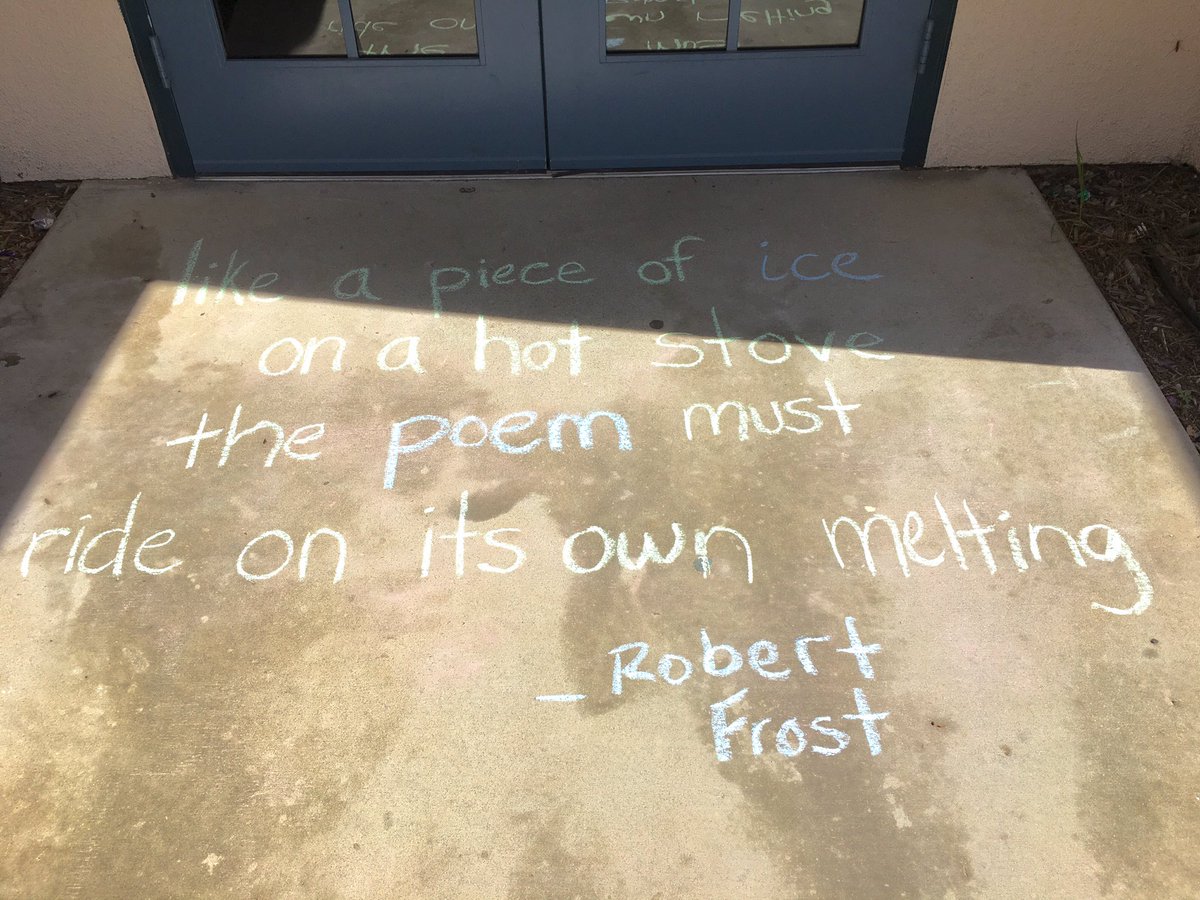 like a piece of ice
on a hot stove
the poem must
ride on its own melting
- Robert
Frost